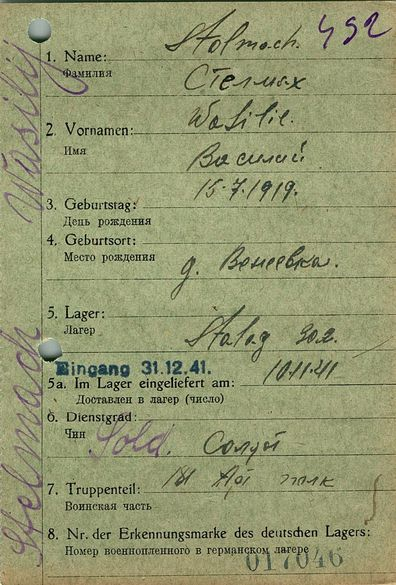 492
1. Name: Stelmach.
Фамилия Стельмах
2. Vornamen: Wasilie.
Имя Василий
15.7.1919.
3. Geburtstag:
День рождения
4. Geburtsort:
Место рождения д.
5. Lager: Stalag 302
Лагерь
Eingang 31.12.41.
5a. Im Lager eingeliefert am: 10.11.41
Доставлен в лагер (число)
6. Dienstgrad: Sold.
Чин
7. Truppenteil: 181 Арт полк
Воинская часть
8. Nr. der Erkennungsmarke des deutschen Lagers:
Номер военнопленного в германском лагере
017046
Stelmach Wasilij